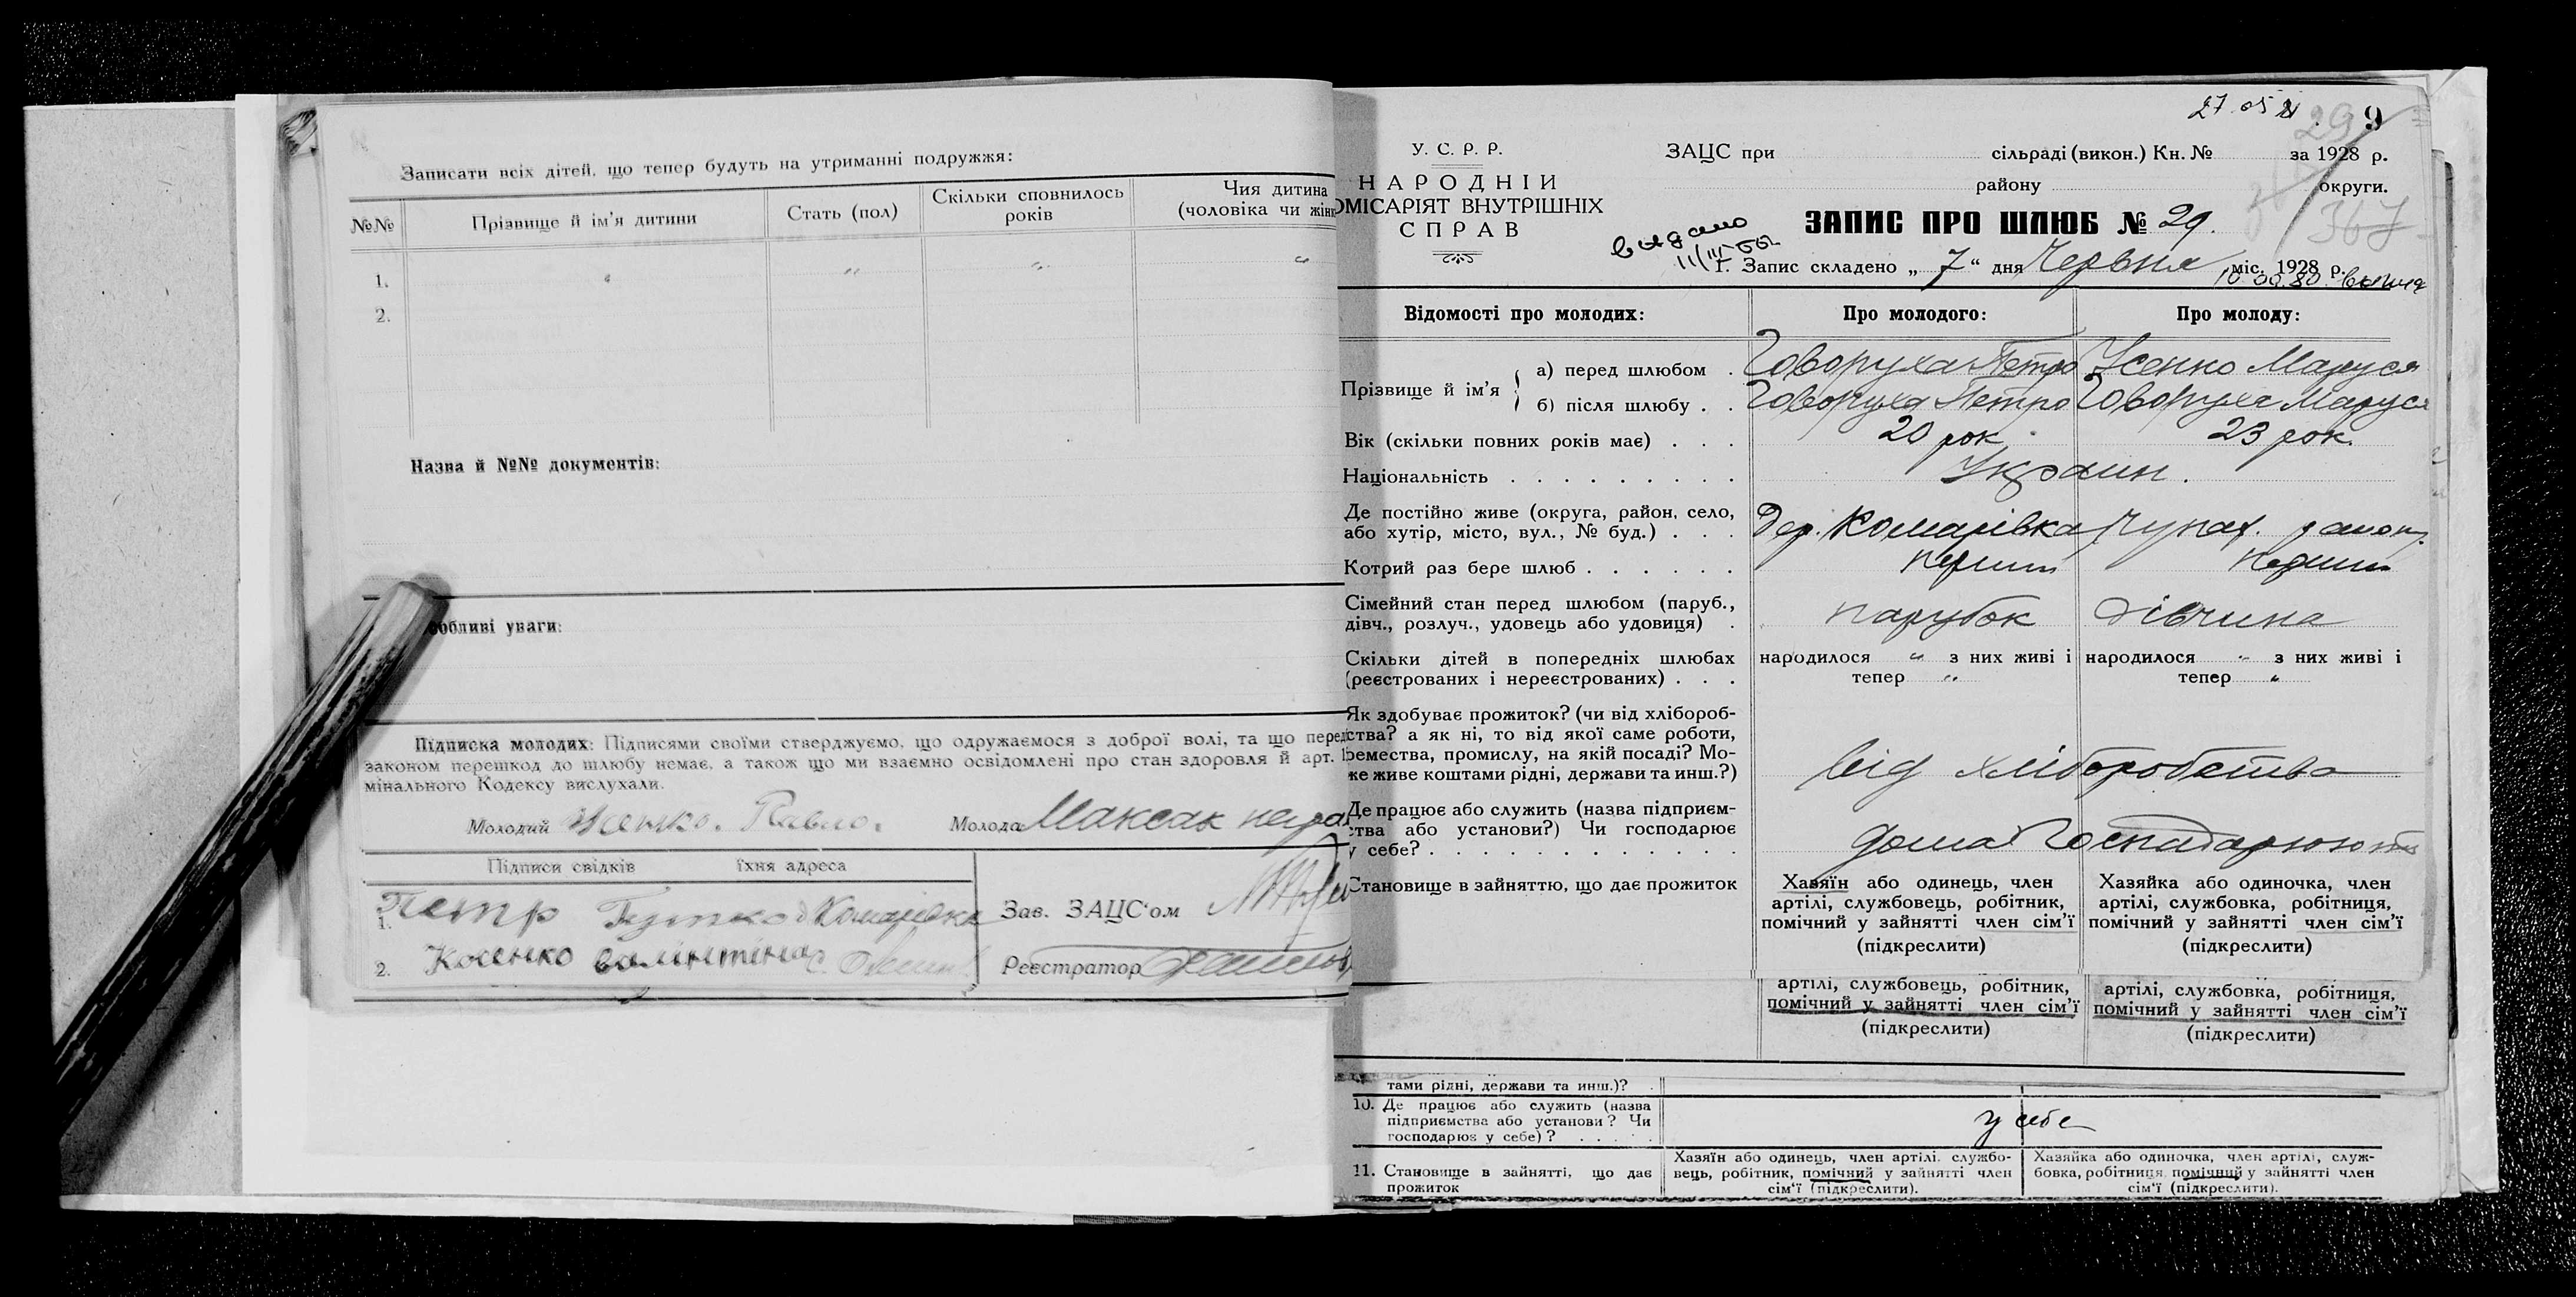 Записати всіх дітей, що тепер будуть на утриманні подружжя:
№№
Прізвище й ім'я дитини
Стать (пол)
Скільки сповнилось
років
Чия дитина
(чоловіка чи жінк
1. " " " "
2.
Назва й №№ документів:
обливі уваги:
Підписка молодих: Підписями своїми стверджуємо, що одружаємося з доброї волі, та що перед
законом перешкод до шлюбу немає, а також що ми взаємно освідомлені про стан здоровля й арт. 1
мінального Кодексу вислухали.
Молодий Усенко. Павло. Молода Максак
Підписи свідків їхня адреса
1. Петр Комарівка
Зав. ЗАЦС'ом
2. Косенко валінтіна с.
Реєстратор
27.05 9
29
367
У. С. Р. Р.
НАРОДНІЙ
ОМІСАРІЯТ ВНУТРІШНІХ
СПРАВ
ЗАЦС при сільраді (викон.) Кн. № за 1928 р.
району округи.
видано
11/III
ЗАПИС ПРО ШЛЮБ № 29.
І. Запис складено „ 7 " дня Червня міс. 1928 р.
Відомості про молодих: Про молодого: Про молоду:
Прізвище й ім'я
а) перед шлюбом . Говоруха Петро Усенко Маруся
б) після шлюбу . . Говоруха Петро Говоруха Маруся
Вік (скільки повних років має) . . . 20 рок 23 рок.
Національність . . . . . . . . . Украин.
Де постійно живе (округа, район, село,
або хутір, місто, вул., № буд.) . . . Дер. Комарівка, Чупах. район.
Котрий раз бере шлюб . . . . . . перший перший
Сімейний стан перед шлюбом (паруб.,
дівч., розлуч., удовець або удовиця) . парубок дівчина
Скільки дітей в попередніх шлюбах
(реєстрованих і нереєстрованих) . . .
народилося " з них живі і
тепер "
народилося " з них живі і
тепер "
Як здобуває прожиток? (чи від хлібороб-
ства? а як ні, то від якої саме роботи,
ремества, промислу, на якій посаді? Мо-
же живе коштами рідні, держави та инш.?)
від хліборобства
Де працює або служить (назва підприєм-
ства або установи?) Чи господарює
у себе? . . . . . . . . . . . .
дома Госпадарюють
Становище в зайняттю, що дає прожиток
Хазяїн або одинець, член
артілі, службовець, робітник,
помічний у зайнятті член сім'ї
(підкреслити)
Хазяйка або одиночка, член
артілі, службовка, робітниця,
помічний у зайнятті член сім'ї
(підкреслити)
артілі, службовець, робітник,
помічний у зайнятті член сім'ї
(підкреслити)
артілі, службовка, робітниця,
помічний у зайнятті член сім'ї
(підкреслити)
тами рідні, держави та инш.)?
10. Де працює або служить (назва
підприємства або установи? Чи
господарює у себе)? . . . . .
у себе
11. Становище в зайнятті, що дає
прожиток
Хазяїн або одинець, член артілі, службо-
вець, робітник, помічний у зайнятті член
сім'ї (підкреслити).
Хазяйка або одиночка, член артілі, служ-
бовка, робітниця, помічний у зайнятті член
сім'ї (підкреслити).